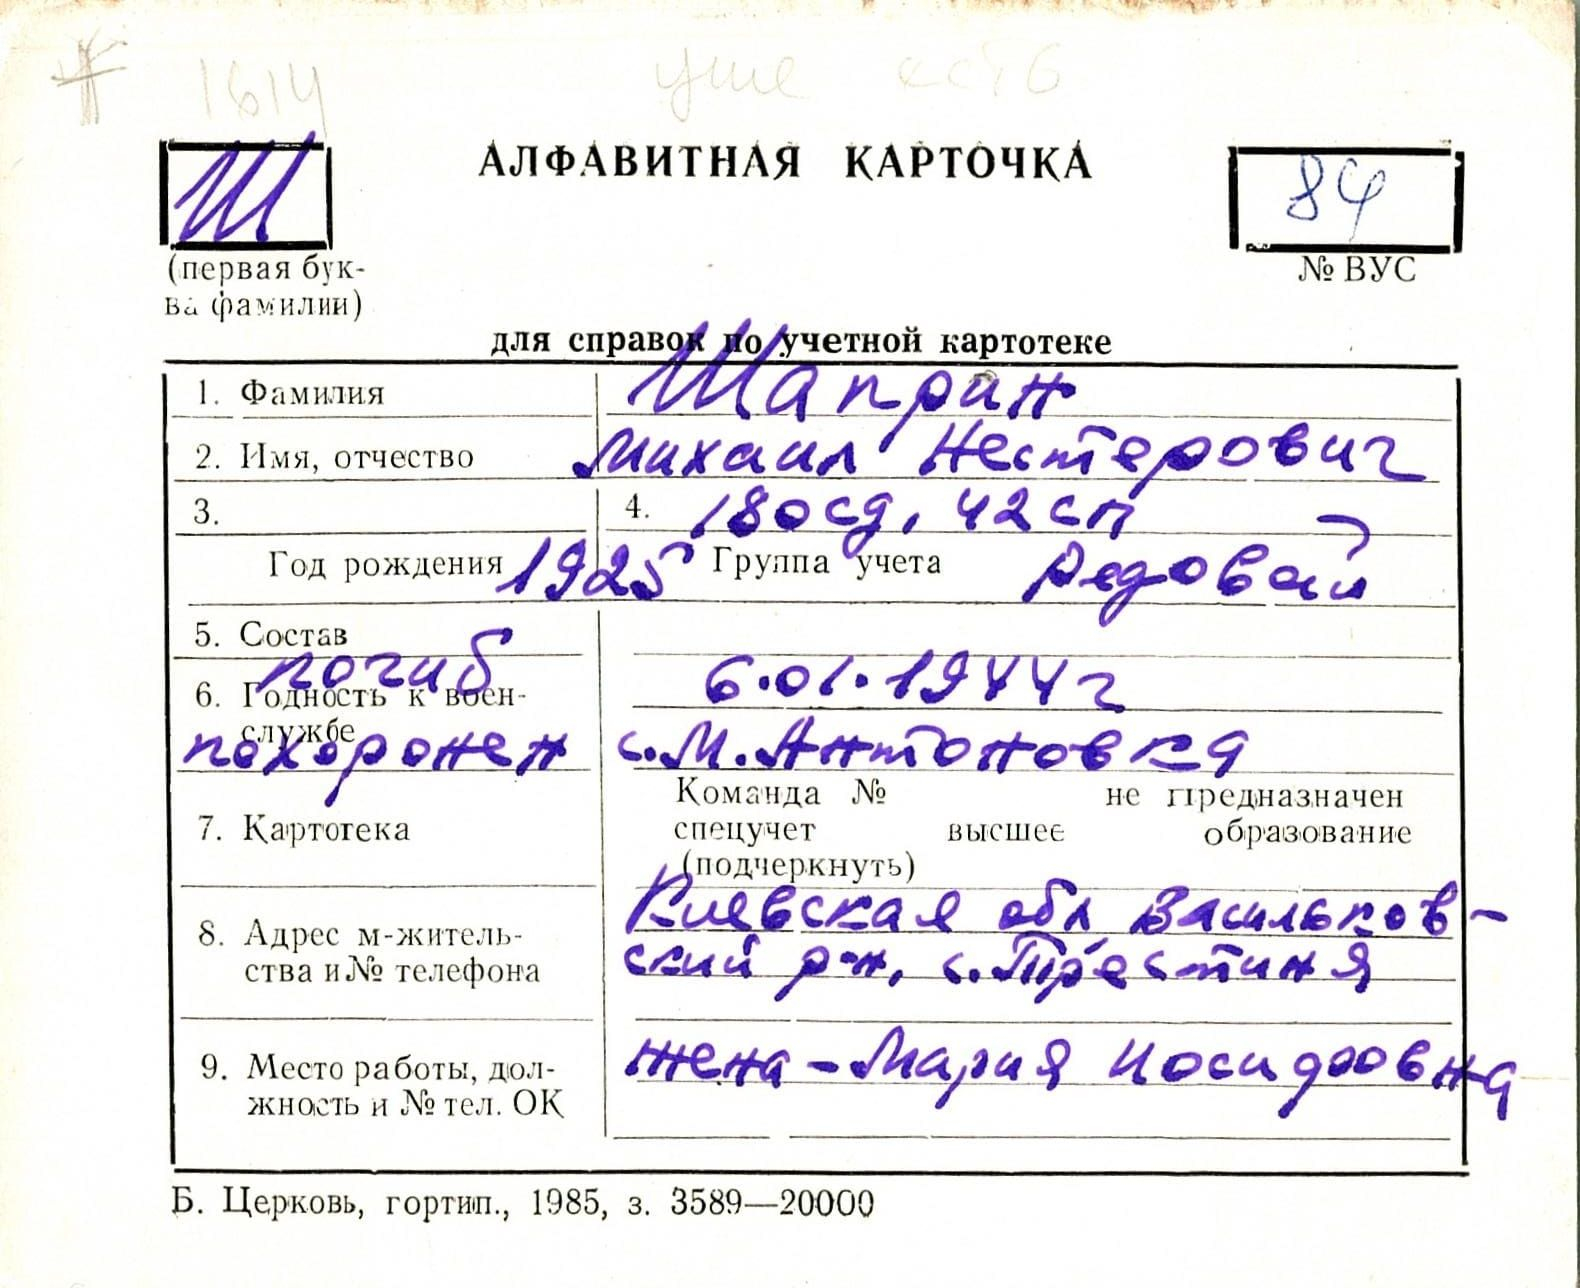 1614 уже есть
Ш АЛФАВИТНАЯ КАРТОЧКА 84
(первая бук-
ва фамилии) № ВУС
для справок по учетной картотеке
1. Фамилия Шаприн
2. Имя, отчество Михаил Нестерович
3. 4. 180 сд, 42 сп
Год рождения 1925 Группа учета Рядовой
5. Состав
погиб 6.01.1944г
6. Годность к воен-
службе
похоронен с. М. Антоновка
Команда № не предназначен
7. Картотека спецучет высшее образование
(подчеркнуть)
Киевская обл Васильков-
8. Адрес м-житель-
ства и № телефона ский р-н, с. Трестиня
9. Место работы, дол- жена - Мария Иосифовна
жность и № тел. ОК
Б. Церковь, гортип., 1985, з. 3589—20000